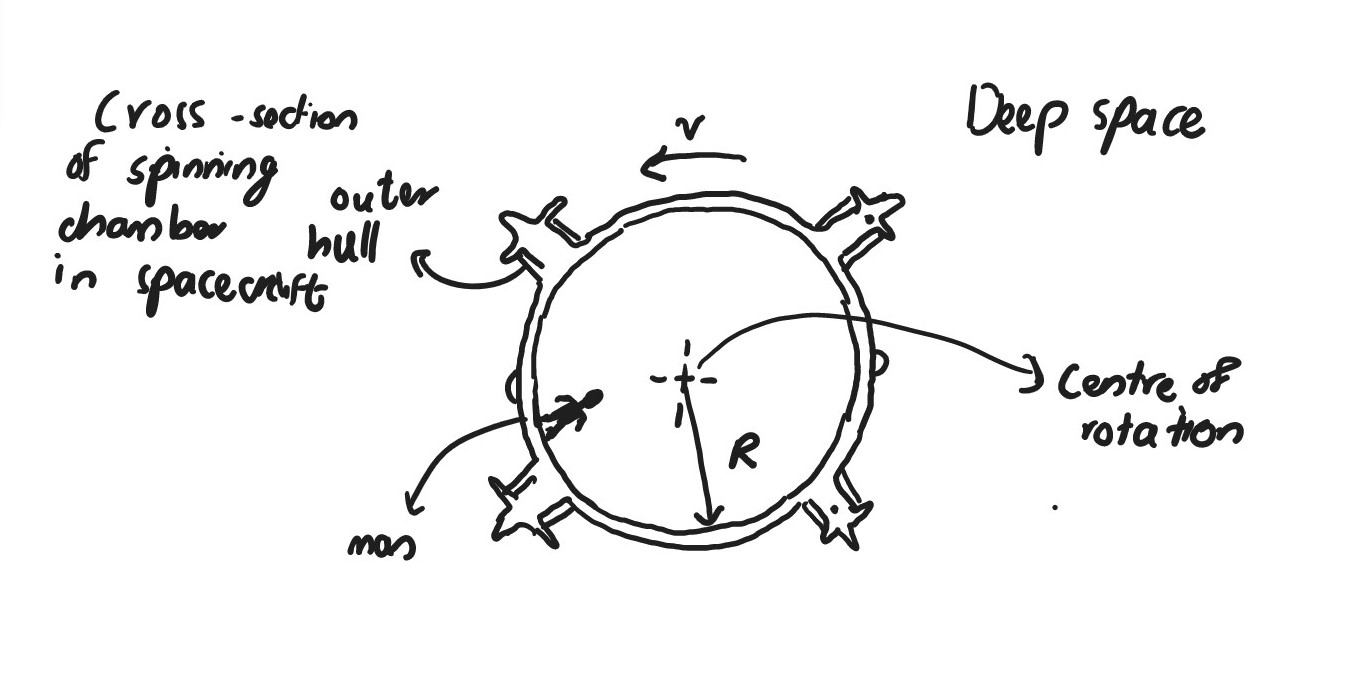 Cross-section
of spinning
chamber
in spacecraft
outer
hull
v
Deep space
R
Centre of
rotation
man